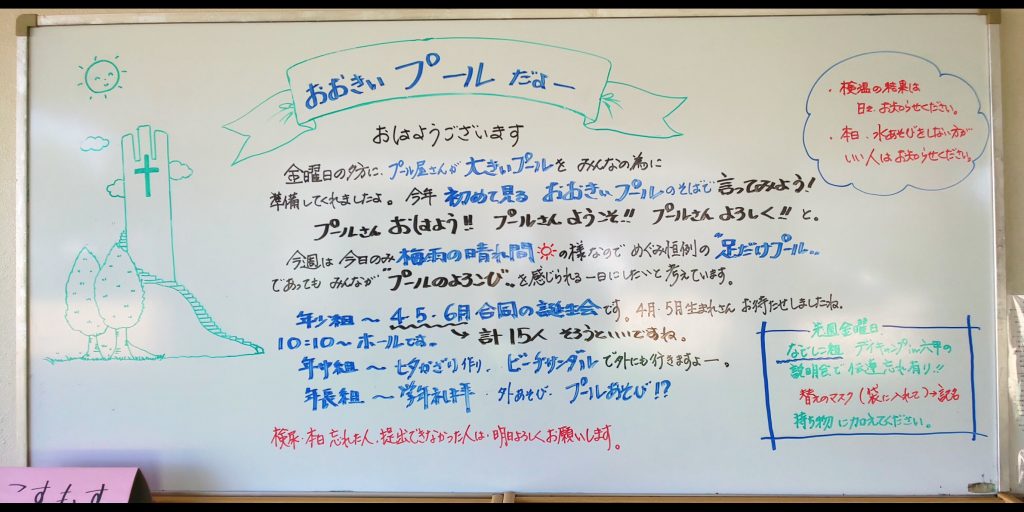 おおきい プール だよー
おはようございます
金曜日の夕方に、プール屋さんが 大きいプールを みんなの為に
準備してくれましたよ。今年 初めて見る おおきいプールのそばで 言ってみよう!
プールさん おはよう!! プールさん ようこそ!! プールさん よろしく!! と。
今週は 今日のみ 梅雨の晴れ間 の様なので めぐみ恒例の "足だけプール"
であっても みんなが "プールのよろこび" を感じられる一日にしたいと考えています。
年少組 ~ 4.5.6月 合同の誕生会です。4月.5月生まれさん お待たせしましたね。
10:10~ ホールです。 計15人 そろうといいですね。
年中組 ~ 七夕かざり作り、ビーチサンダルで外にも行きますよー。
年長組 ~ 学年礼拝・外あそび・プールあそび!?
検尿・本日 忘れた人、提出できなかった人は、明日よろしくお願いします。
・検温の結果は
日々、お知らせください。
・本日、水あそびをしない方が
いい人は お知らせください。
先週金曜日
なでしこ組 デイキャンプin六甲の
説明会で 伝達忘れ有り!!
替えのマスク(袋に入れて)→記名
持ち物に加えてください。
こすもす